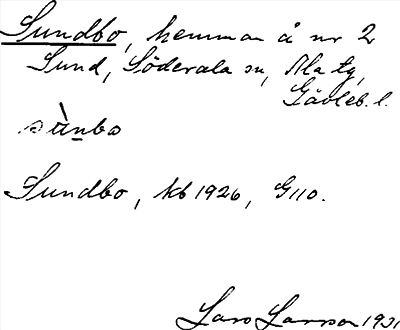 Sundbo, hemman å nr 2
Sund, Söderala sn, Ala tg,
Gävleb. l.
sùnbo
Sundbo, kb 1926, G110.
Lars Larsson 1931